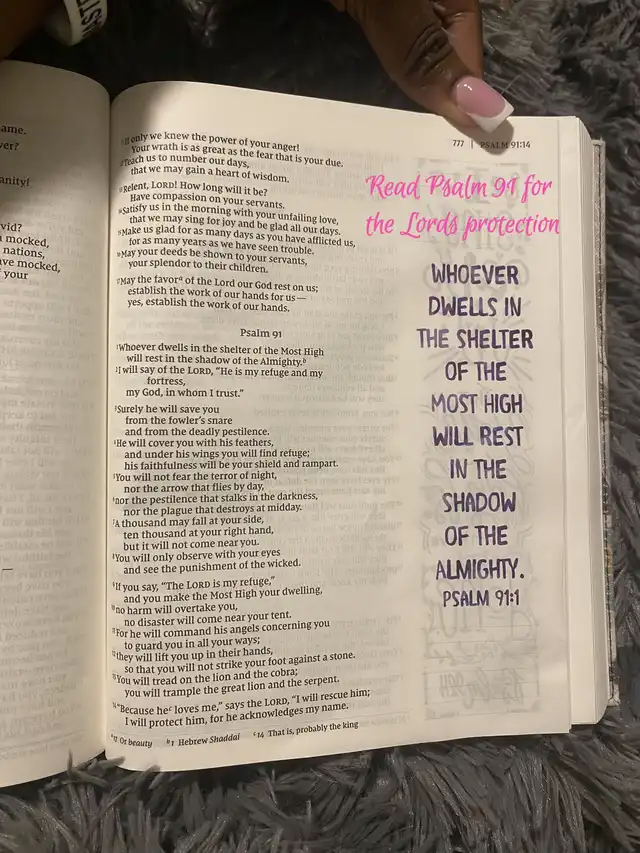 ame.
ver?
anity!
vid?
mocked,
nations,
ave mocked,
your
777 | PSALM 91:14
If only we knew the power of your anger!
Your wrath is as great as the fear that is your due.
12Teach us to number our days,
that we may gain a heart of wisdom.
13Relent, LORD! How long will it be?
Have compassion on your servants.
14Satisfy us in the morning with your unfailing love,
that we may sing for joy and be glad all our days.
15Make us glad for as many days as you have afflicted us,
for as many years as we have seen trouble.
16May your deeds be shown to your servants,
your splendor to their children.
17May the favorª of the Lord our God rest on us;
establish the work of our hands for us—
yes, establish the work of our hands.
Psalm 91
1Whoever dwells in the shelter of the Most High
will rest in the shadow of the Almighty.ᵇ
2I will say of the LORD, “He is my refuge and my
fortress,
my God, in whom I trust.”
3Surely he will save you
from the fowler’s snare
and from the deadly pestilence.
4He will cover you with his feathers,
and under his wings you will find refuge;
his faithfulness will be your shield and rampart.
5You will not fear the terror of night,
nor the arrow that flies by day,
6nor the pestilence that stalks in the darkness,
nor the plague that destroys at midday.
7A thousand may fall at your side,
ten thousand at your right hand,
but it will not come near you.
8You will only observe with your eyes
and see the punishment of the wicked.
9If you say, “The LORD is my refuge,”
and you make the Most High your dwelling,
10no harm will overtake you,
no disaster will come near your tent.
11For he will command his angels concerning you
to guard you in all your ways;
12they will lift you up in their hands,
so that you will not strike your foot against a stone.
13You will tread on the lion and the cobra;
you will trample the great lion and the serpent.
14“Because heᶜ loves me,” says the LORD, “I will rescue him;
I will protect him, for he acknowledges my name.
ª17 Or beauty ᵇ1 Hebrew Shaddai ᶜ14 That is, probably the king
Read Psalm 91 for
the Lords protection
WHOEVER
DWELLS IN
THE SHELTER
OF THE
MOST HIGH
WILL REST
IN THE
SHADOW
OF THE
ALMIGHTY.
PSALM 91:1